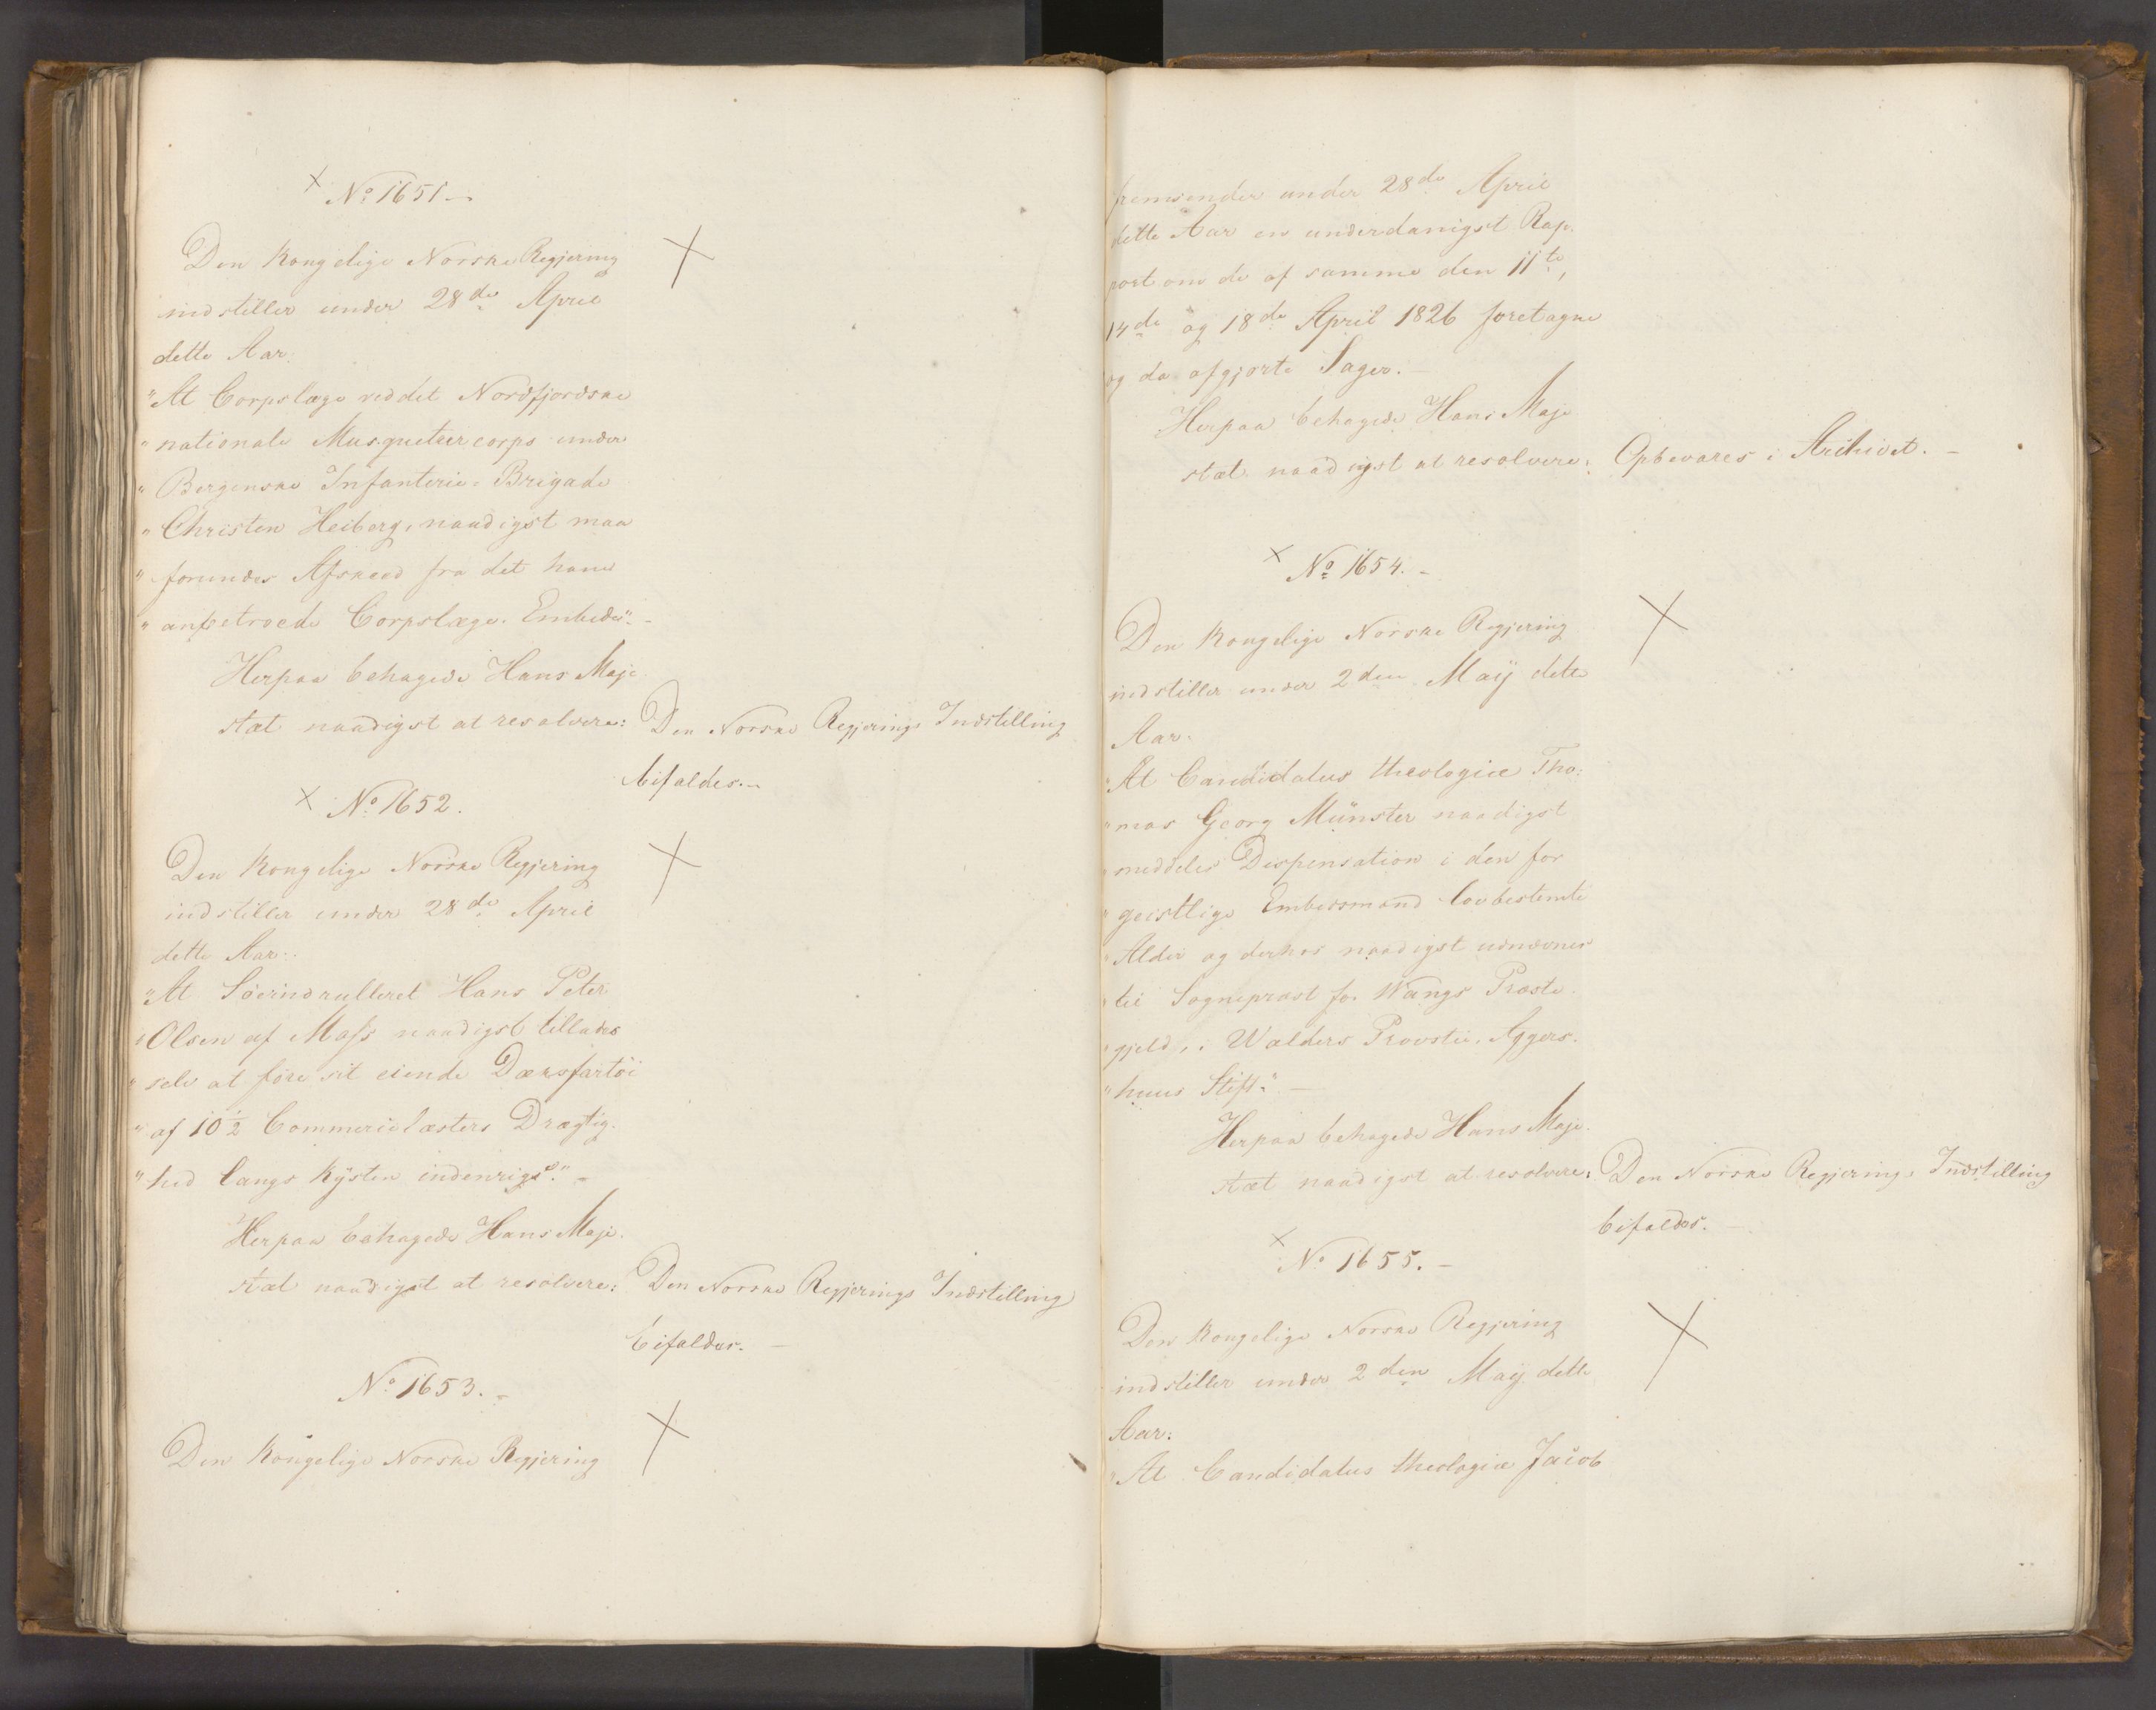 No 1651.
Den Kongelige Norske Regjering
indstiller under 28de April
dette Aar:
"At Corpslæge ved det Nordfjordske
"nationale Musqueteercorps under
"Bergenske Infanterie-Brigade
"Christen Heiberg, naadigst maa
"forundes Afskeed fra det ham
"anbetroede Corpslæge-Embede". -
Herpaa behagede Hans Maje-
stæt naadigst at resolvere: Den Norske Regjerings Indstilling
bifaldes. -
No 1652.
Den Kongelige Norske Regjering
indstiller under 28de April
dette Aar:
"At Söeindrulleret Hans Peter
"Olsen af Moss naadigst tillades
"selv at före sit eiende Dæksfartöi
"af 10½ Commercelæsters Drægtig-
"hed langs Kysten indenrigs". -
Herpaa behagede Hans Maje-
stæt naadigst at resolvere: Den Norske Regjerings Indstilling
bifaldes. -
No 1653. -
Den Kongelige Norske Regjering
fremsender under 28de April
dette Aar en underdanigst Rap-
port om de af samme den 11te,
14de og 18de April 1826 foretagne
og da afgjorte Sager. -
Herpaa behagede Hans Maje-
stæt naadigst at resolvere: Opbevares i Archivet. -
No 1654. -
Den Kongelige Norske Regjering
indstiller under 2den May dette
Aar:
"At Candidatus theologiæ Tho-
"mas Georg Münster naadigst
"meddeles Dispensation i den for
"geistlige Embedsmænd lovbestemte
"Alder og derhos naadigst udnævnes
"til Sognepræst for Wangs Præste-
"gjeld, i Walders Provstie, Aggers-
"huus Stift." -
Herpaa behagede Hans Maje-
stæt naadigst at resolvere: Den Norske Regjerings Indstilling
bifaldes. -
No 1655. -
Den Kongelige Norske Regjering
indstiller under 2den May dette
Aar:
"At Candidatus theologiæ Jacob